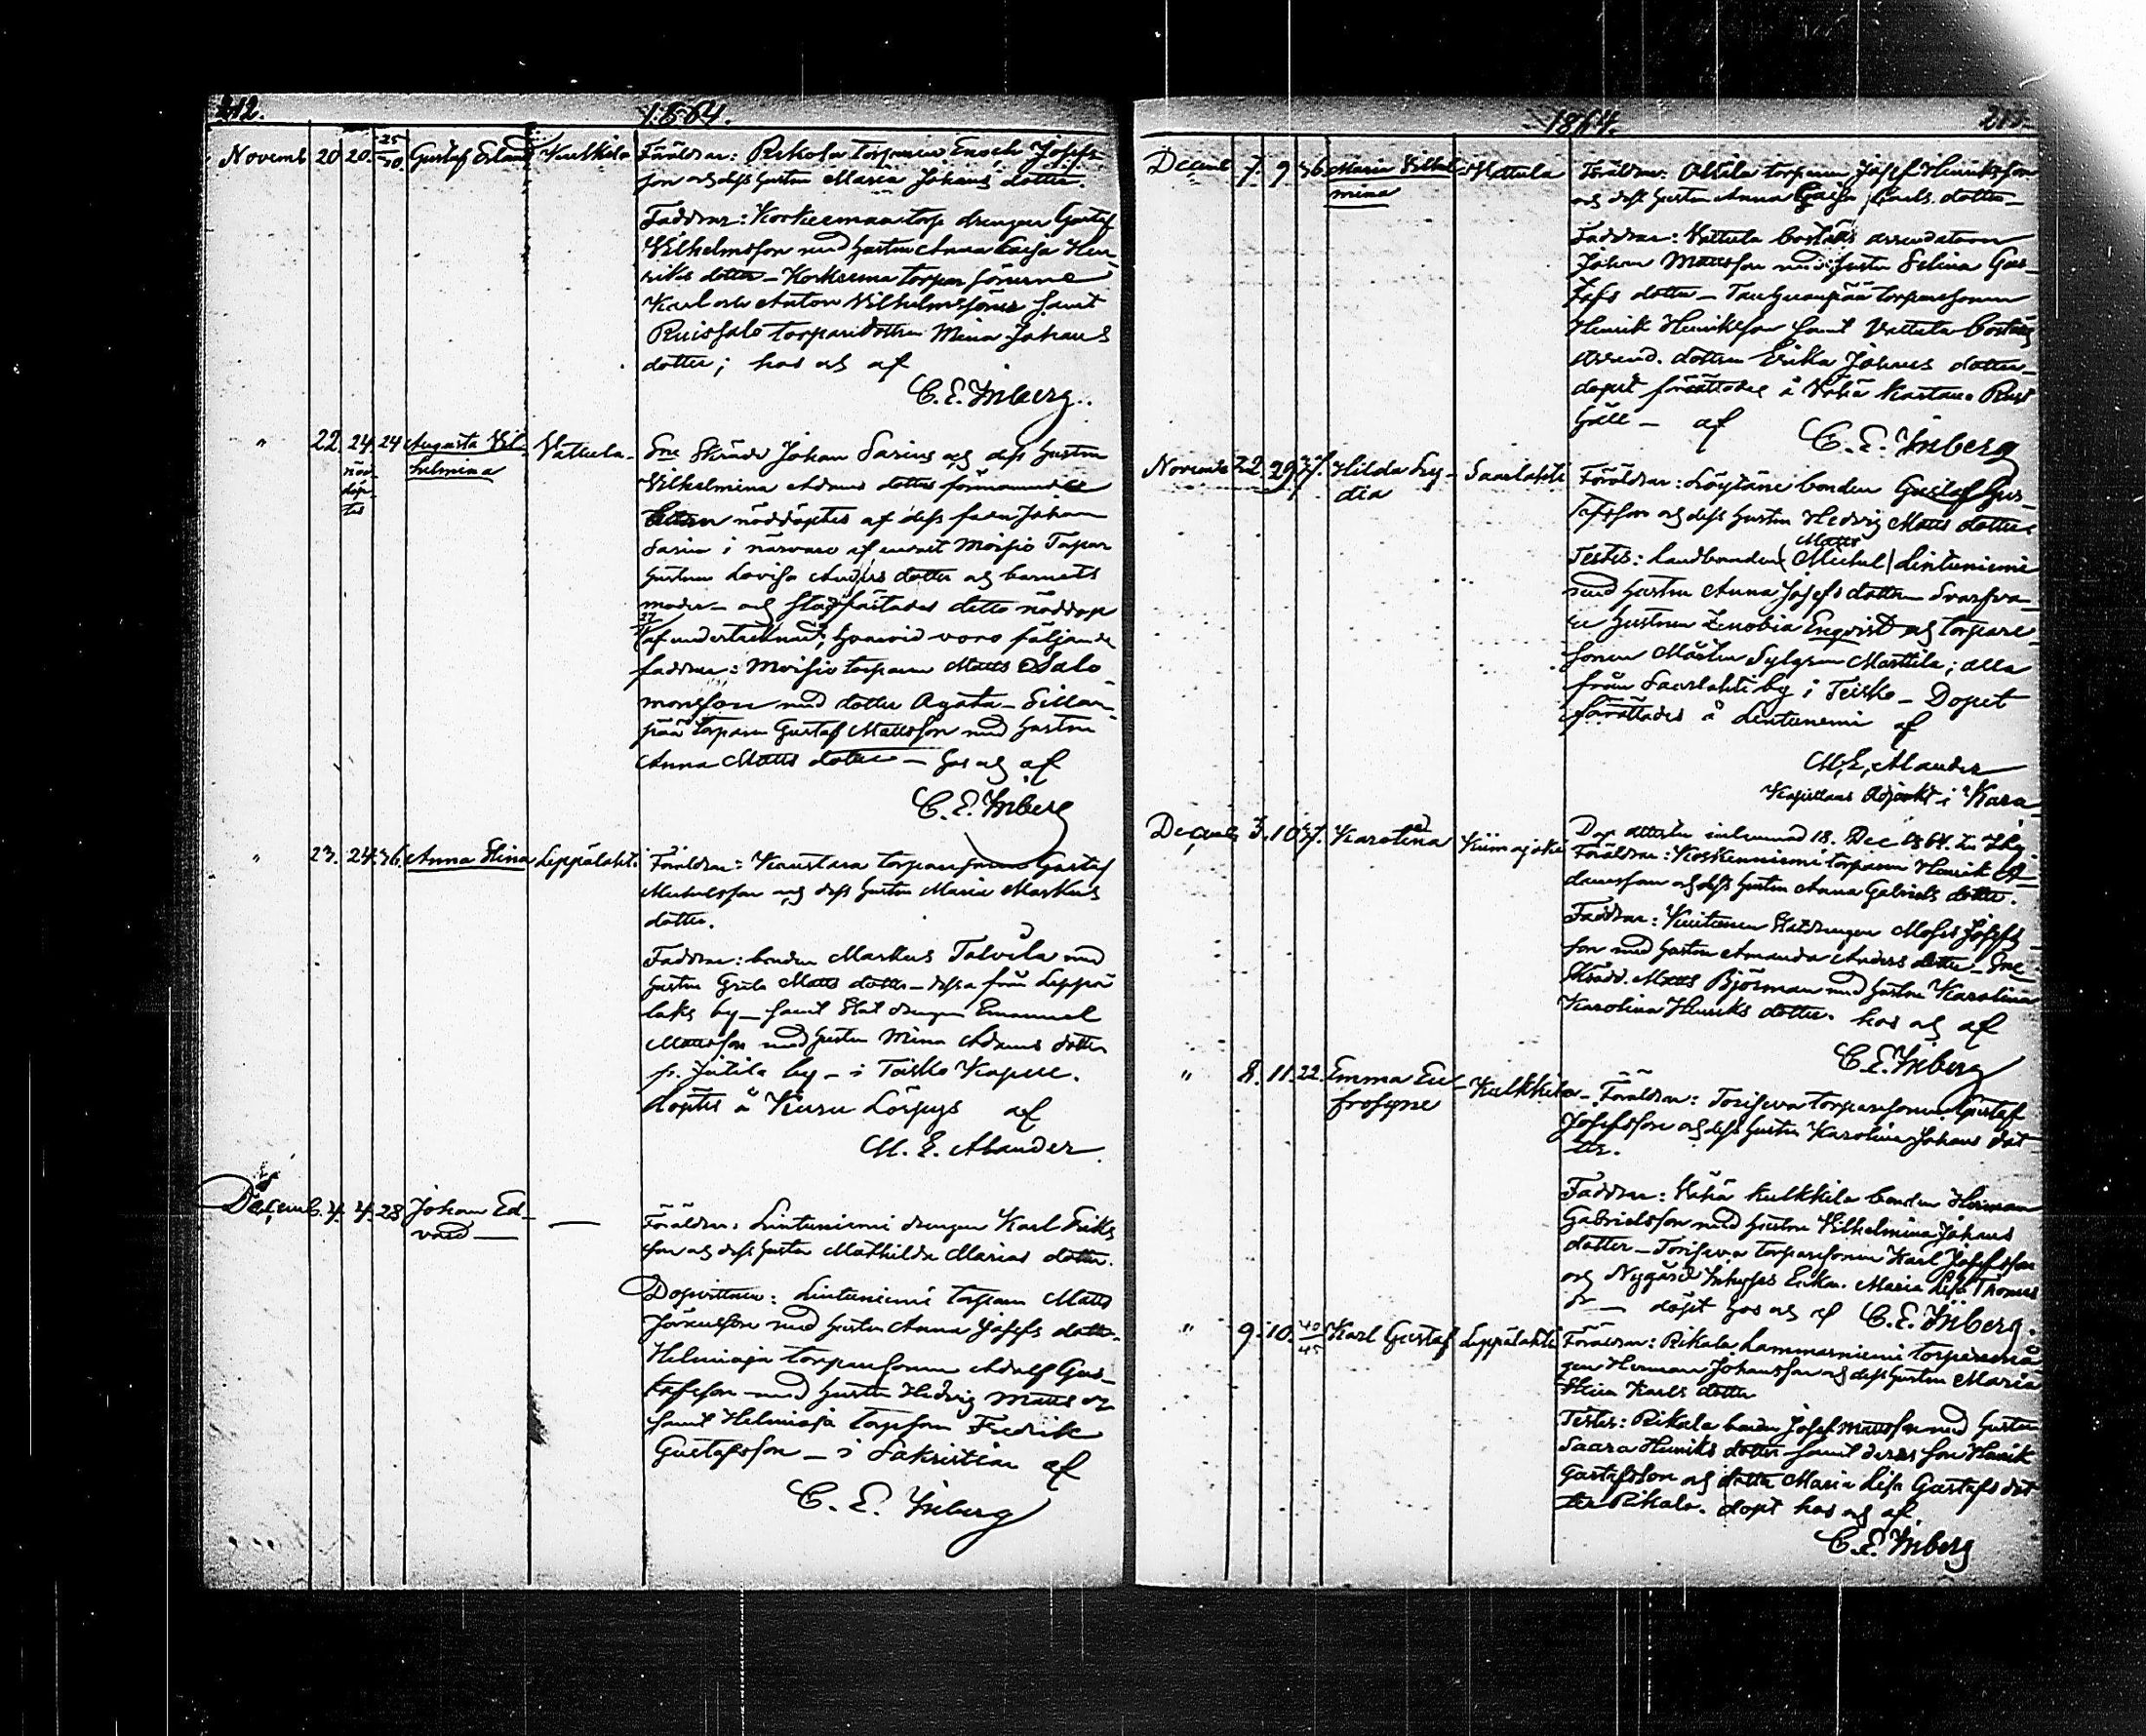 212.
1864.
Novemb 20 20. 25/30. Gustaf Erland Kulkkila Föräldrar: Riskola torparen Enoch Josefs-
son och dess hustru Maria Johans dotter.
Faddrar: Korkeemaa torp drengen Gustaf
Wilhelmsson med hustru Anna Caisa Hen-
riks dotter – Korkeema torpar sönerne
Karl och Anton Wilhelmssöner samt
Ruissalo torparedottren Mina Johans
dotter; hos och af
C. E. Inberg.
" 22 24. 24 Augusta Vil- Vattula – Sne Skrädd Johan Sarins och dess hustru
nöd- helmina Vilhelmina Adams dotter förenämnde
döp-
tes nöddöptes af dess fader Johan
Sarin i närvaro af endast Moisio Torpar
hustrun Lovisa Anders dotter och barnets
moder – och stadfästades detta nöddop
27/11 af undertecknad; hvarvid voro följande
faddrar: Moisio torparen Matts Salo-
monsson med dotter Agata – Sillan-
pää torparen Gustaf Mattsson med hustru
Anna Matts dotter – hos och af
C. E. Inberg
" 23. 24. 36. Anna Stina Leppälahti Föräldrar: Kaustara torparesonen Gustaf
Michelsson och dess hustru Maria Markus
dotter.
Faddrar: bonden Markus Talvila med
hustru Greta Matts dotter – dessa från Leppä
laks by – samt Stat drengen Emanuel
Mattsson med hustru Mina Adams dotter
fr. Jutila by – i Teisko Kapell.
döptes å Kuru Löjtys af
M. E. Alander
Decemb. 4. 4. 28 Johan Ed- — Föräldrar: Lintuniemi drengen Karl Eriks
vard — son och dess hustru Mathilda Marias dotter.
Dopvittnen: Lintuniemi torparen Matts
Göransson med hustru Anna Josefs dotter.
Helmioja torparesonen Adolf Gus-
tafsson – med hustru Hedvig Matts dr
samt Helmioja torpson Fredrik
Gustafsson – i Sakristian af
C. E. Inberg
1864.
213.
Decemb 7. 9 36 Maria Vilhel- Vattula Föräldrar: Attila torparen Josef Henriksson
mina och dess hustru Anna Caisa Karls dotter –
Faddrar: Vattula boställs arrendatorn
Johan Mattsson med hustru Selina Gus-
tafs dotter – torparesonen
Henrik Henriksson samt Vattula boställs
arrend. dottren Erika Johans dotter –
dopet förrättades å Vähä Kartano Rust
håll – af C. E. Inberg
Novemb 22 29 37. Hilda Ly- Saarlahti Föräldrar: Löytäne bonden Gustaf Gus-
dia tafsson och dess hustru Hedvig Matts dotter.
Matts
Testes: Landbonden (Michel) Lintuniemi
med hustru Anna Josefs dotter – Svarfva-
re hustrun Zenobia Enqvist och torpare
sonen Mårten Sylgren Marttila; alla
från Saarlahti by i Teisko – Dopet
förrättades å Lintuniemi af
M. E. Alander
Kapellans Adjunkt i Kuru
Dop attesten inlemnad 18. Dec 1864.
Decemb 3. 10 37. Karolina Kiimajoki Föräldrar: Koskenniemi torparen Henrik A-
damsson och dess hustru Anna Gabriels dotter.
Faddrar: Statdrengen Moses Josefs-
son med hustru Amanda Anders dotter – Sne
Skrädd. Matts Björman med hustru Karolina
Karolina Henriks dotter. hos och af
C. E. Inberg
" 8. 11. 22. Emma Eu- Kulkkila – Föräldrar: Toriseva torparesonen Gustaf
frosyne Josefsson och dess hustru Karolina Johans dot
ter.
Faddrar: Vähä Kulkkila bonden Herman
Gabrielsson med hustru Vilhelmina Johans
dotter – Toriseva torparesonen Karl Josefsson
och Nygård Inhyses Enkan Maria Lisa Thomas
dr — döpt hos och af C. E. Inberg.
" 9. 10. 40/45 Karl Gustaf Leppälahti Föräldrar: Rikala Lammasniemi torparemå
gen Herman Johansson och dess hustru Maria
Stina Karls dotter
Testes: Rikala bonden Josef Mattsson med hustru
Saara Henriks dotter samt deras son Henrik
Gustafsson och dotter Maria Lisa Gustafs dot
ter Rikala. döpt hos och af
C. E. Inberg